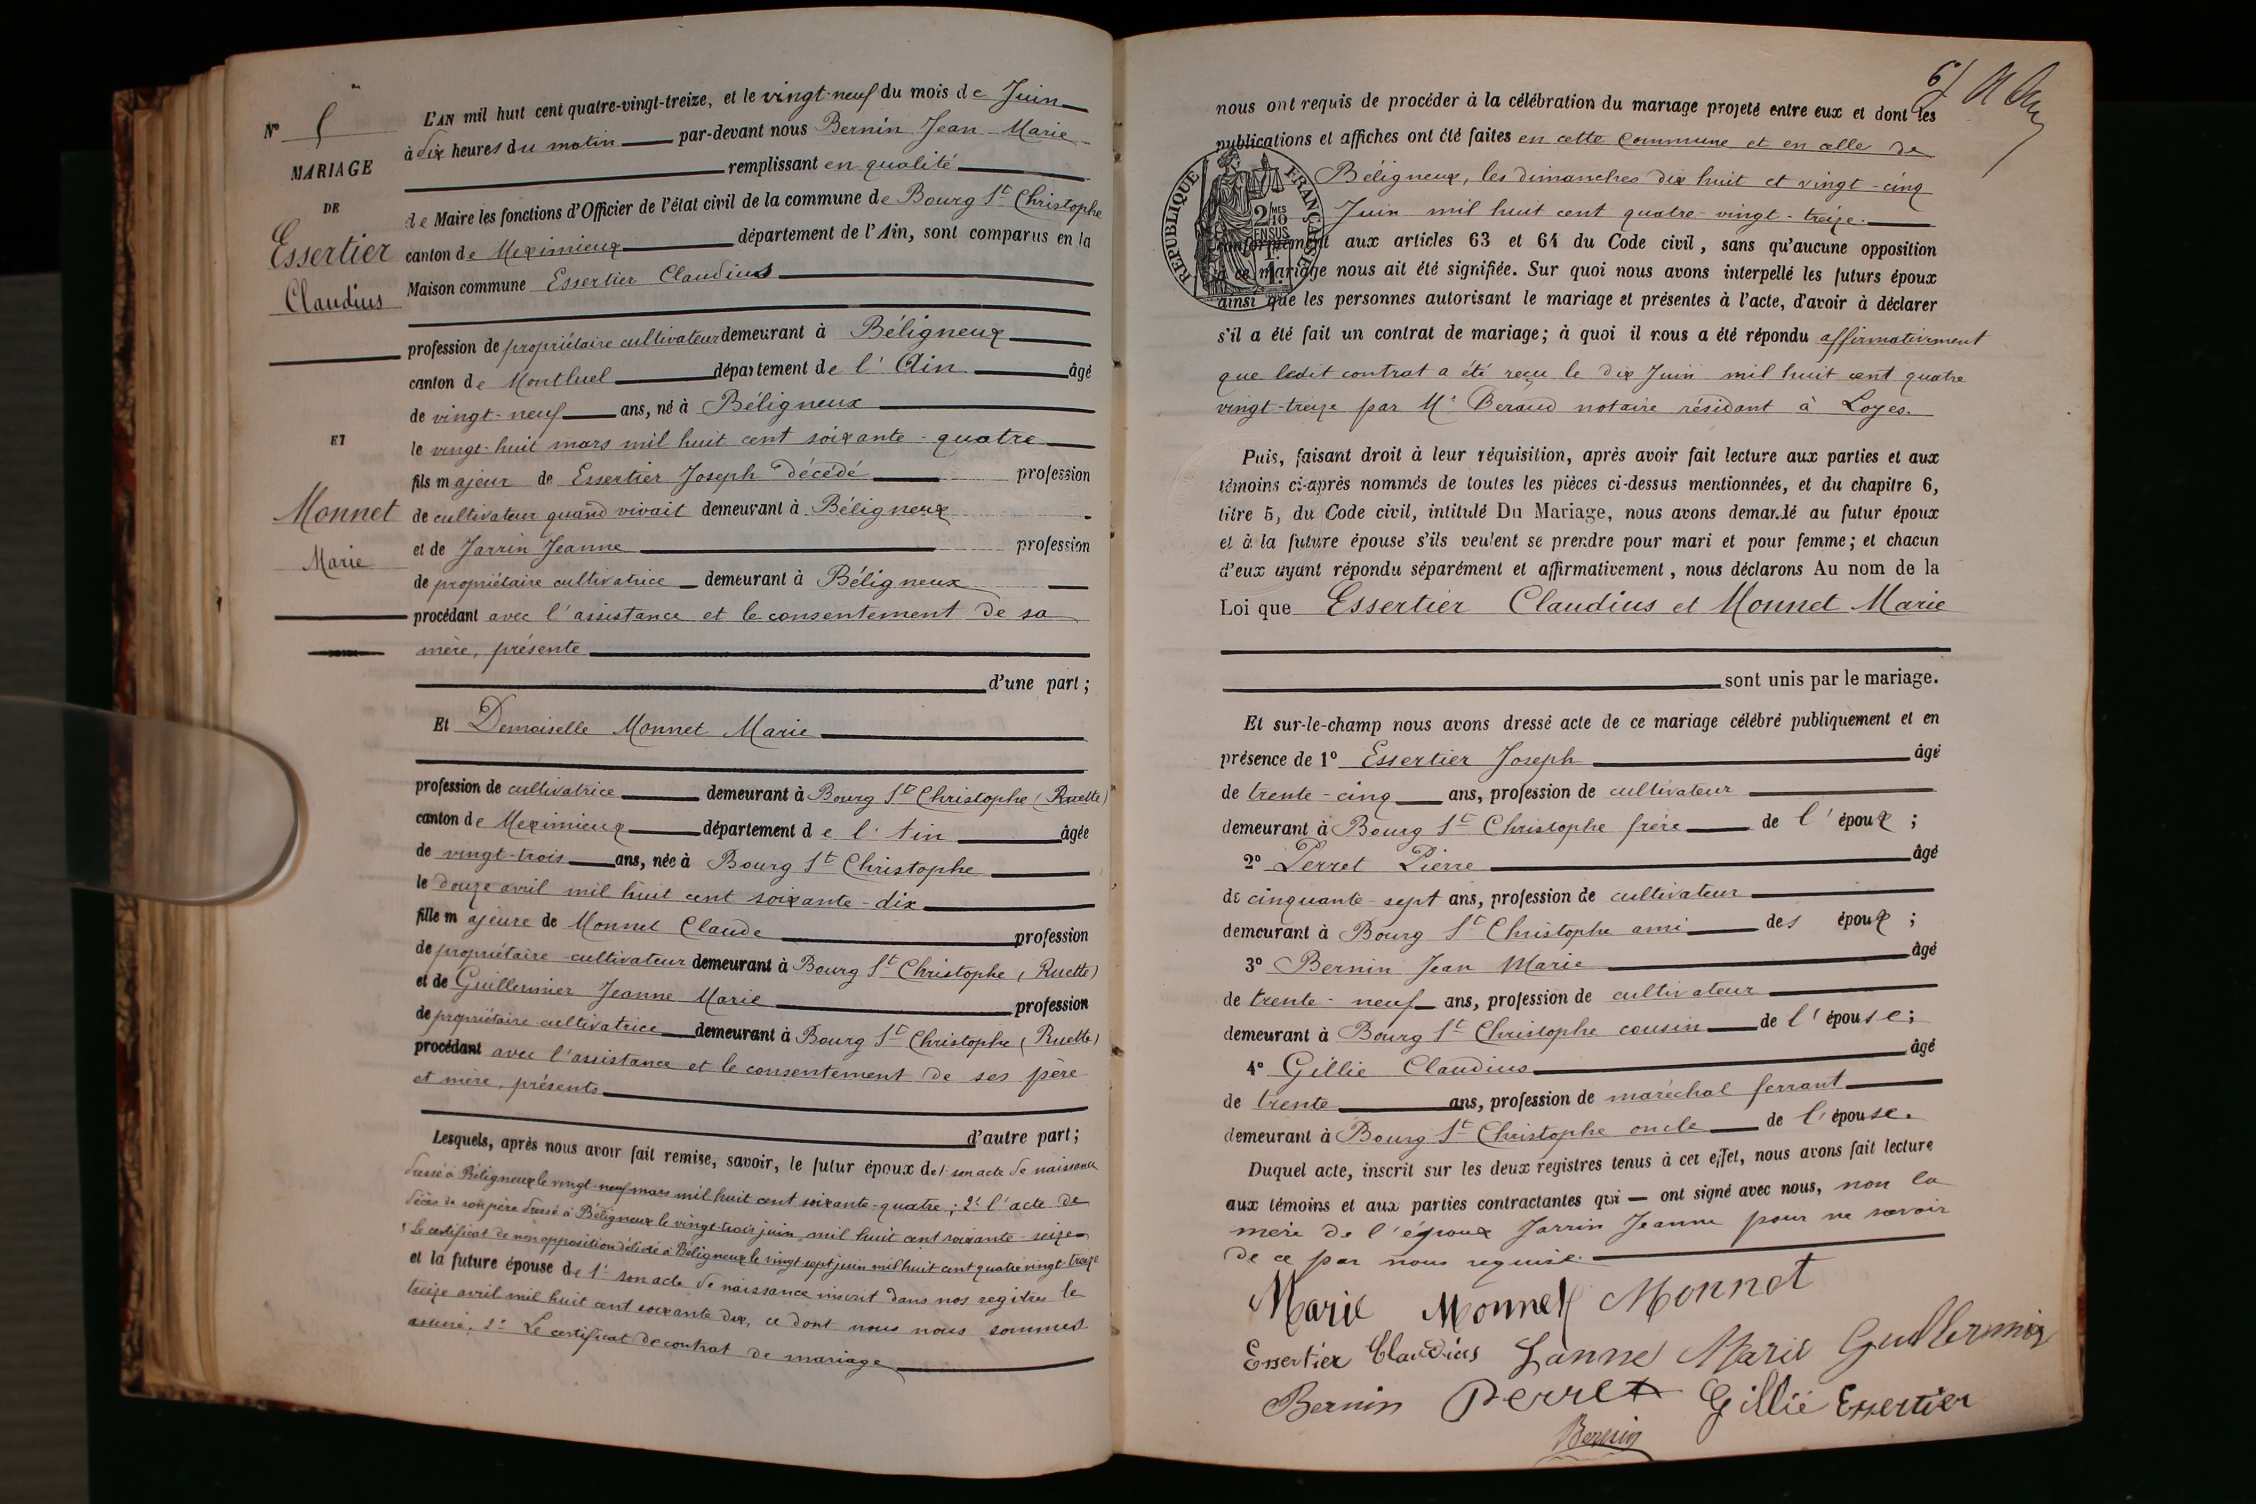 N° 5
MARIAGE
DE
Essertier
Claudius
ET
Monnet
Marie
L'AN mil huit cent quatre-vingt-treize, et le vingt-neuf du mois de Juin
à dix heures du matin par-devant nous Bernin Jean-Marie
remplissant en qualité
de Maire les fonctions d'Officier de l'état civil de la commune de Bourg St Christophe
canton de Meximieux département de l'Ain, sont comparus en la
Maison commune Essertier Claudius
profession de propriétaire cultivateur demeurant à Béligneux
canton de Montluel département de l'Ain âgé
de vingt-neuf ans, né à Béligneux
le vingt-huit mars mil huit cent soixante-quatre
fils majeur de Essertier Joseph décédé profession
de cultivateur quand vivait demeurant à Béligneux
et de Jarrin Jeanne profession
de propriétaire cultivatrice demeurant à Béligneux
procédant avec l'assistance et le consentement de sa
mère, présente
d'une part ;
Et Demoiselle Monnet Marie
profession de cultivatrice demeurant à Bourg St Christophe (Ruette)
canton de Meximieux département de l'Ain âgée
de vingt-trois ans, née à Bourg St Christophe
le douze avril mil huit cent soixante-dix
fille majeure de Monnet Claude profession
de propriétaire-cultivateur demeurant à Bourg St Christophe (Ruette)
et de Guillermier Jeanne Marie profession
de propriétaire cultivatrice demeurant à Bourg St Christophe (Ruette)
procédant avec l'assistance et le consentement de ses père
et mère, présents
d'autre part ;
Lesquels, après nous avoir fait remise, savoir, le futur époux de 1° son acte de naissance
dressé à Béligneux le vingt-neuf mars mil huit cent soixante-quatre ; 2° l'acte de
décès de son père dressé à Béligneux le vingt-trois juin mil huit cent soixante-seize
3° Le certificat de non opposition délivré à Béligneux le vingt sept juin mil huit cent quatre vingt-treize
et la future épouse de 1° son acte de naissance inscrit dans nos registres le
treize avril mil huit cent soixante dix, ce dont nous nous sommes
assuré. 2° Le certificat de contrat de mariage
6
nous ont requis de procéder à la célébration du mariage projeté entre eux et dont les
publications et affiches ont été faites en cette commune et en celle de
Béligneux, les dimanches dix huit et vingt-cinq
Juin mil huit cent quatre-vingt-treize.
RÉPUBLIQUE FRANÇAISE
2/10 MES
EN SUS
1 F.
conformément aux articles 63 et 64 du Code civil, sans qu'aucune opposition
à ce mariage nous ait été signifiée. Sur quoi nous avons interpellé les futurs époux
ainsi que les personnes autorisant le mariage et présentes à l'acte, d'avoir à déclarer
s'il a été fait un contrat de mariage ; à quoi il nous a été répondu affirmativement
que ledit contrat a été reçu le dix Juin mil huit cent quatre
vingt-treize par Me Beraud notaire résidant à Loyes.
Puis, faisant droit à leur réquisition, après avoir fait lecture aux parties et aux
témoins ci-après nommés de toutes les pièces ci-dessus mentionnées, et du chapitre 6,
titre 5, du Code civil, intitulé Du Mariage, nous avons demandé au futur époux
et à la future épouse s'ils veulent se prendre pour mari et pour femme ; et chacun
d'eux ayant répondu séparément et affirmativement, nous déclarons Au nom de la
Loi que Essertier Claudius et Monnet Marie
sont unis par le mariage.
Et sur-le-champ nous avons dressé acte de ce mariage célébré publiquement et en
présence de 1° Essertier Joseph âgé
de trente-cinq ans, profession de cultivateur
demeurant à Bourg St Christophe frère de l'époux ;
2° Perret Pierre âgé
de cinquante-sept ans, profession de cultivateur
demeurant à Bourg St Christophe ami des époux ;
3° Bernin Jean Marie âgé
de trente-neuf ans, profession de cultivateur
demeurant à Bourg St Christophe cousin de l'épouse ;
4° Gillie Claudius âgé
de trente ans, profession de maréchal ferrant
demeurant à Bourg St Christophe oncle de l'épouse.
Duquel acte, inscrit sur les deux registres tenus à cet effet, nous avons fait lecture
aux témoins et aux parties contractantes qui — ont signé avec nous, non la
mère de l'époux Jarrin Jeanne pour ne savoir
de ce par nous requise.
Marie Monnet Monnet
Essertier Claudius Janne Marie Guillermier
Bernin Perret Gillie Essertier
Bernin